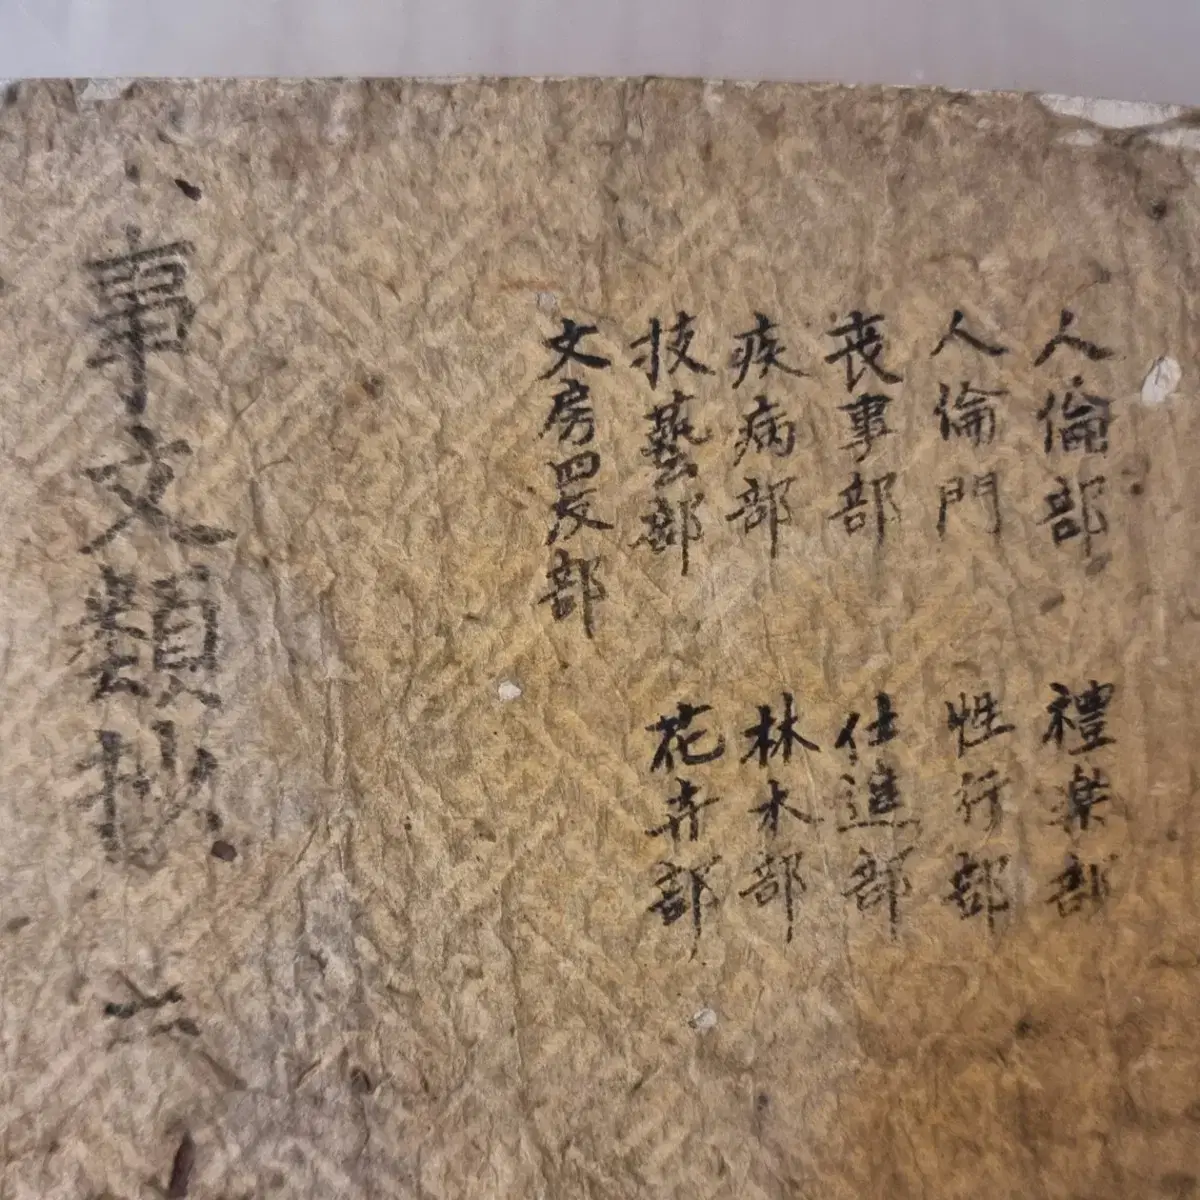 人倫部
人倫門
喪事部
疾病部
技藝部
文房四友部
禮樂部
性行部
仕進部
林木部
花卉部
事文類抄 六